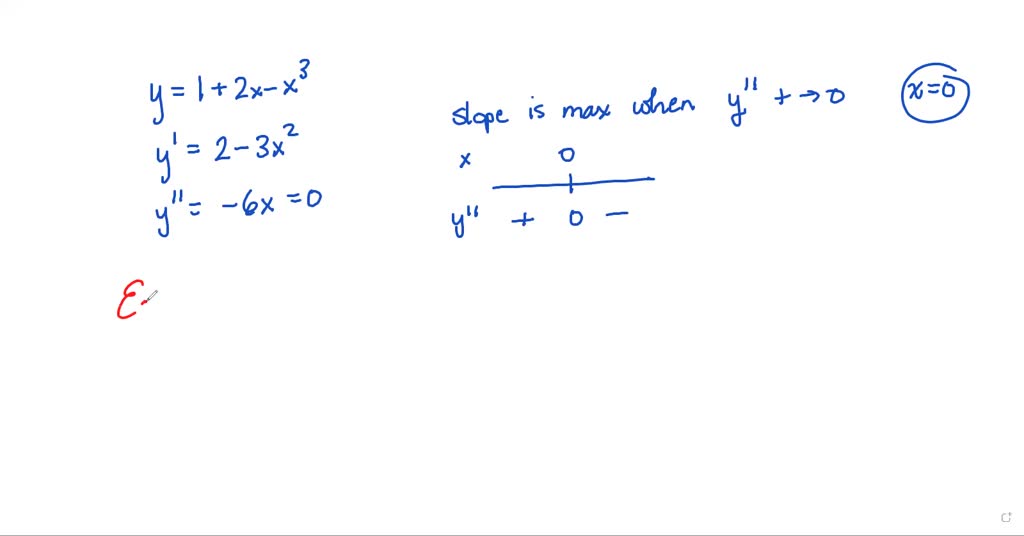 y = 1 + 2x - x³
y' = 2 - 3x²
y'' = -6x = 0
slope is max when y'' + → 0
x = 0
x 0
y'' + 0 -
E